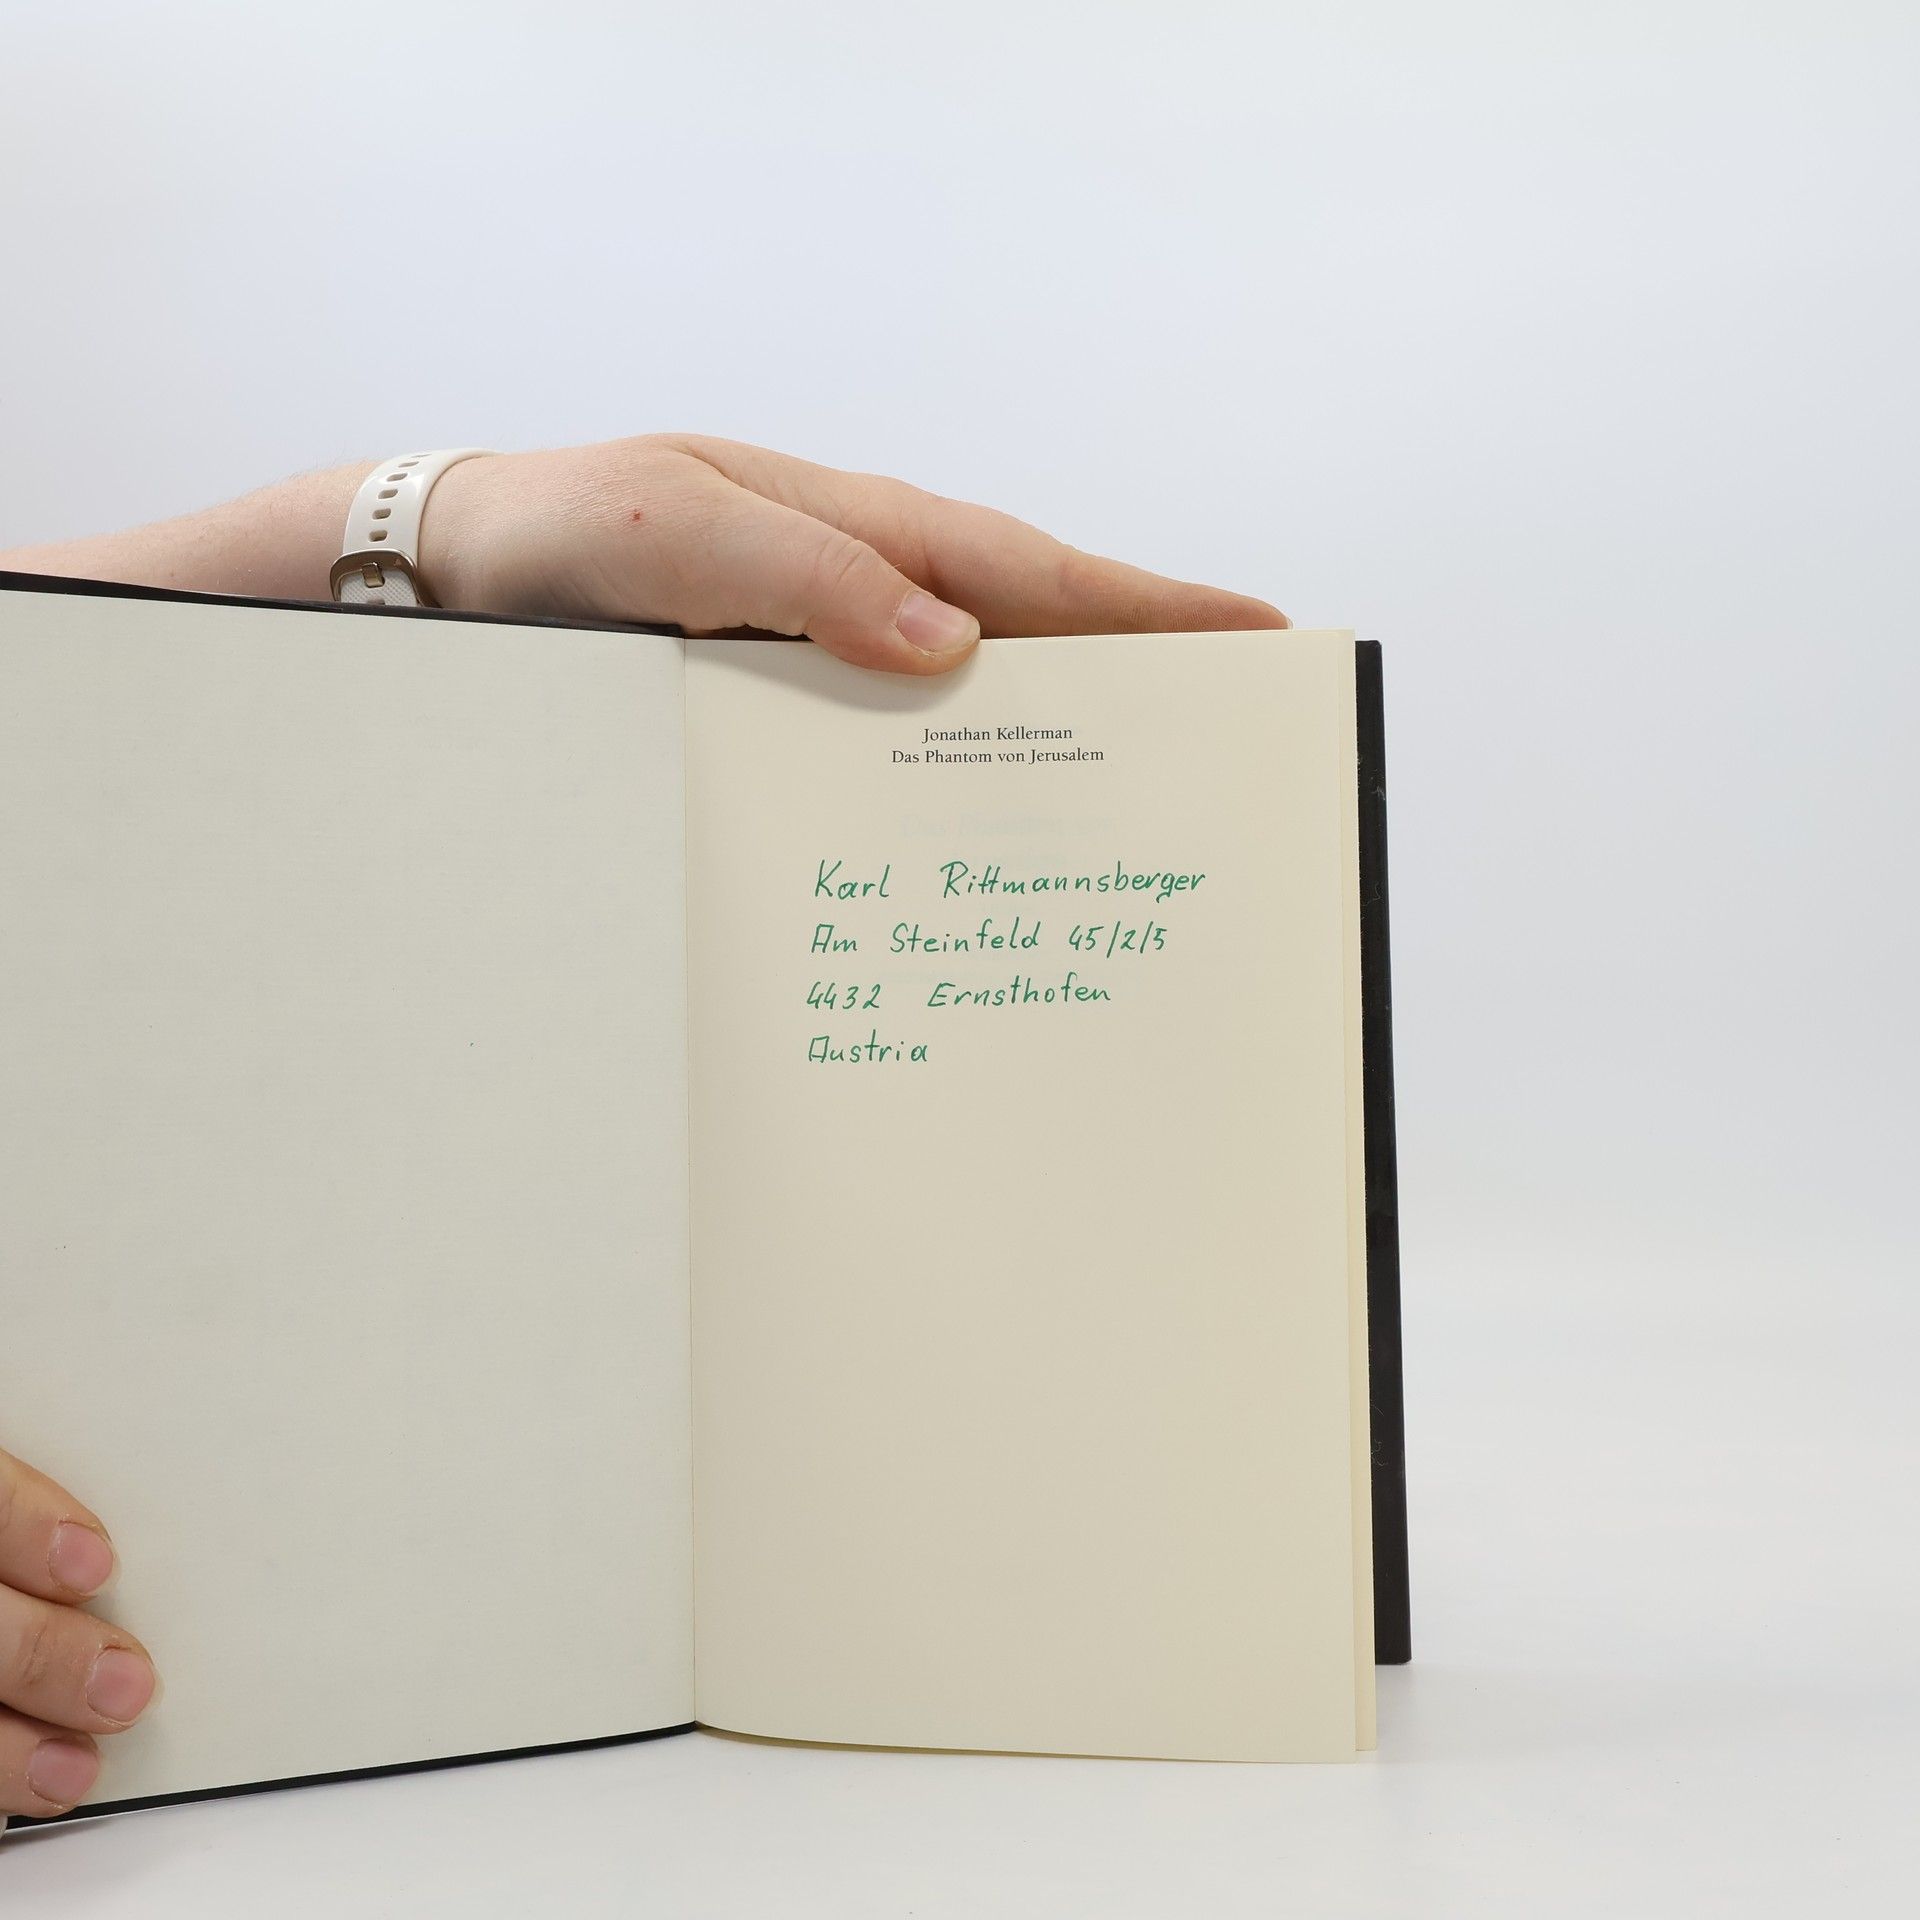 Jonathan Kellerman
Das Phantom von Jerusalem
Karl Rittmannsberger
Am Steinfeld 45/2/5
4432 Ernsthofen
Austria